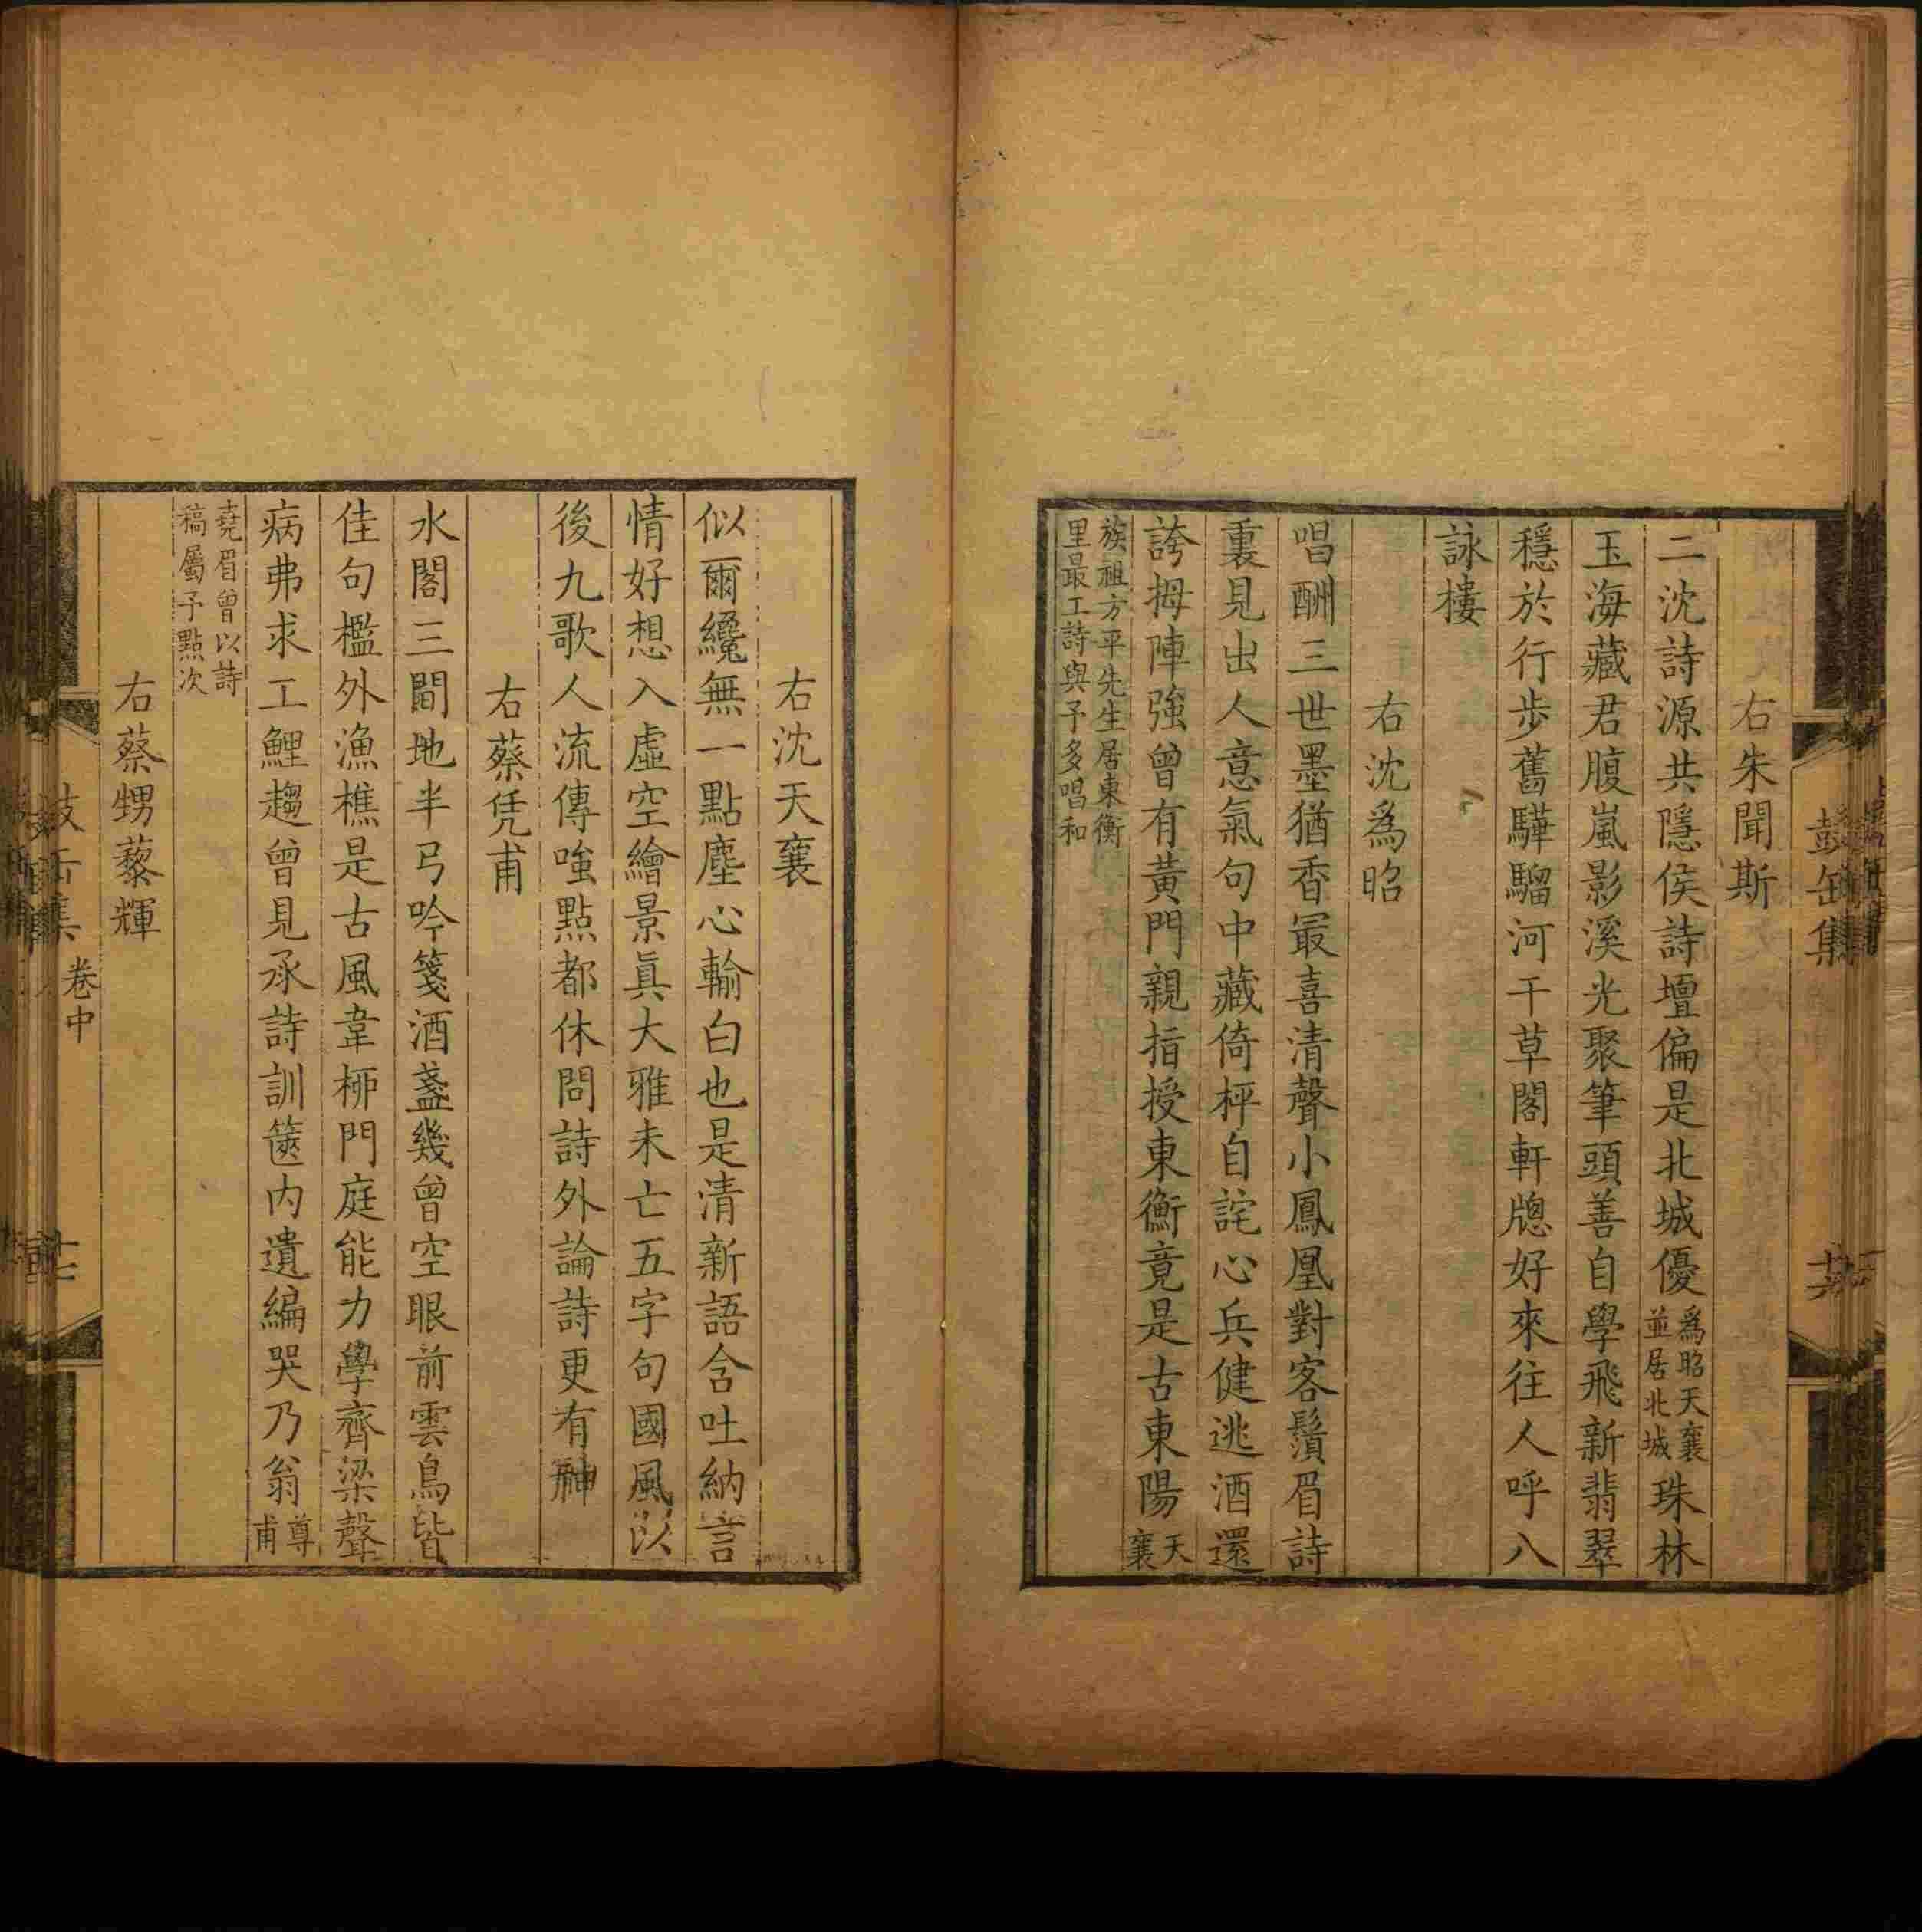 右朱聞斯
二沈詩源共隱侯詩壇偏是北城優爲昭天襄並居北城珠林
玉海藏君腹嵐影溪光聚筆頭善自學飛新翡翠
穩於行步舊驊騮河干草閣軒牕好來往人呼八
詠樓
右沈爲昭
唱酬三世墨猶香最喜清聲小鳳凰對客鬚眉詩
裏見出人意氣句中藏倚枰自詫心兵健逃酒還
誇拇陣強曾有黃門親指授東衡竟是古東陽天襄
族祖方平先生居東衡
里最工詩與予多唱和
右沈天襄
似爾纔無一點塵心輸白也是清新語含吐納言
情好想入虛空繪景眞大雅未亡五字句國風以
後九歌人流傳嗤點都休問詩外論詩更有神
右蔡凭甫
水閣三間地半弓吟箋酒盞幾曾空眼前雲鳥皆
佳句檻外漁樵是古風韋栁門庭能力學齊梁聲
病弗求工鯉趨曾見承詩訓篋內遺編哭乃翁尊甫
堯眉曾以詩
稿屬予點次
右蔡甥藜輝
卷中